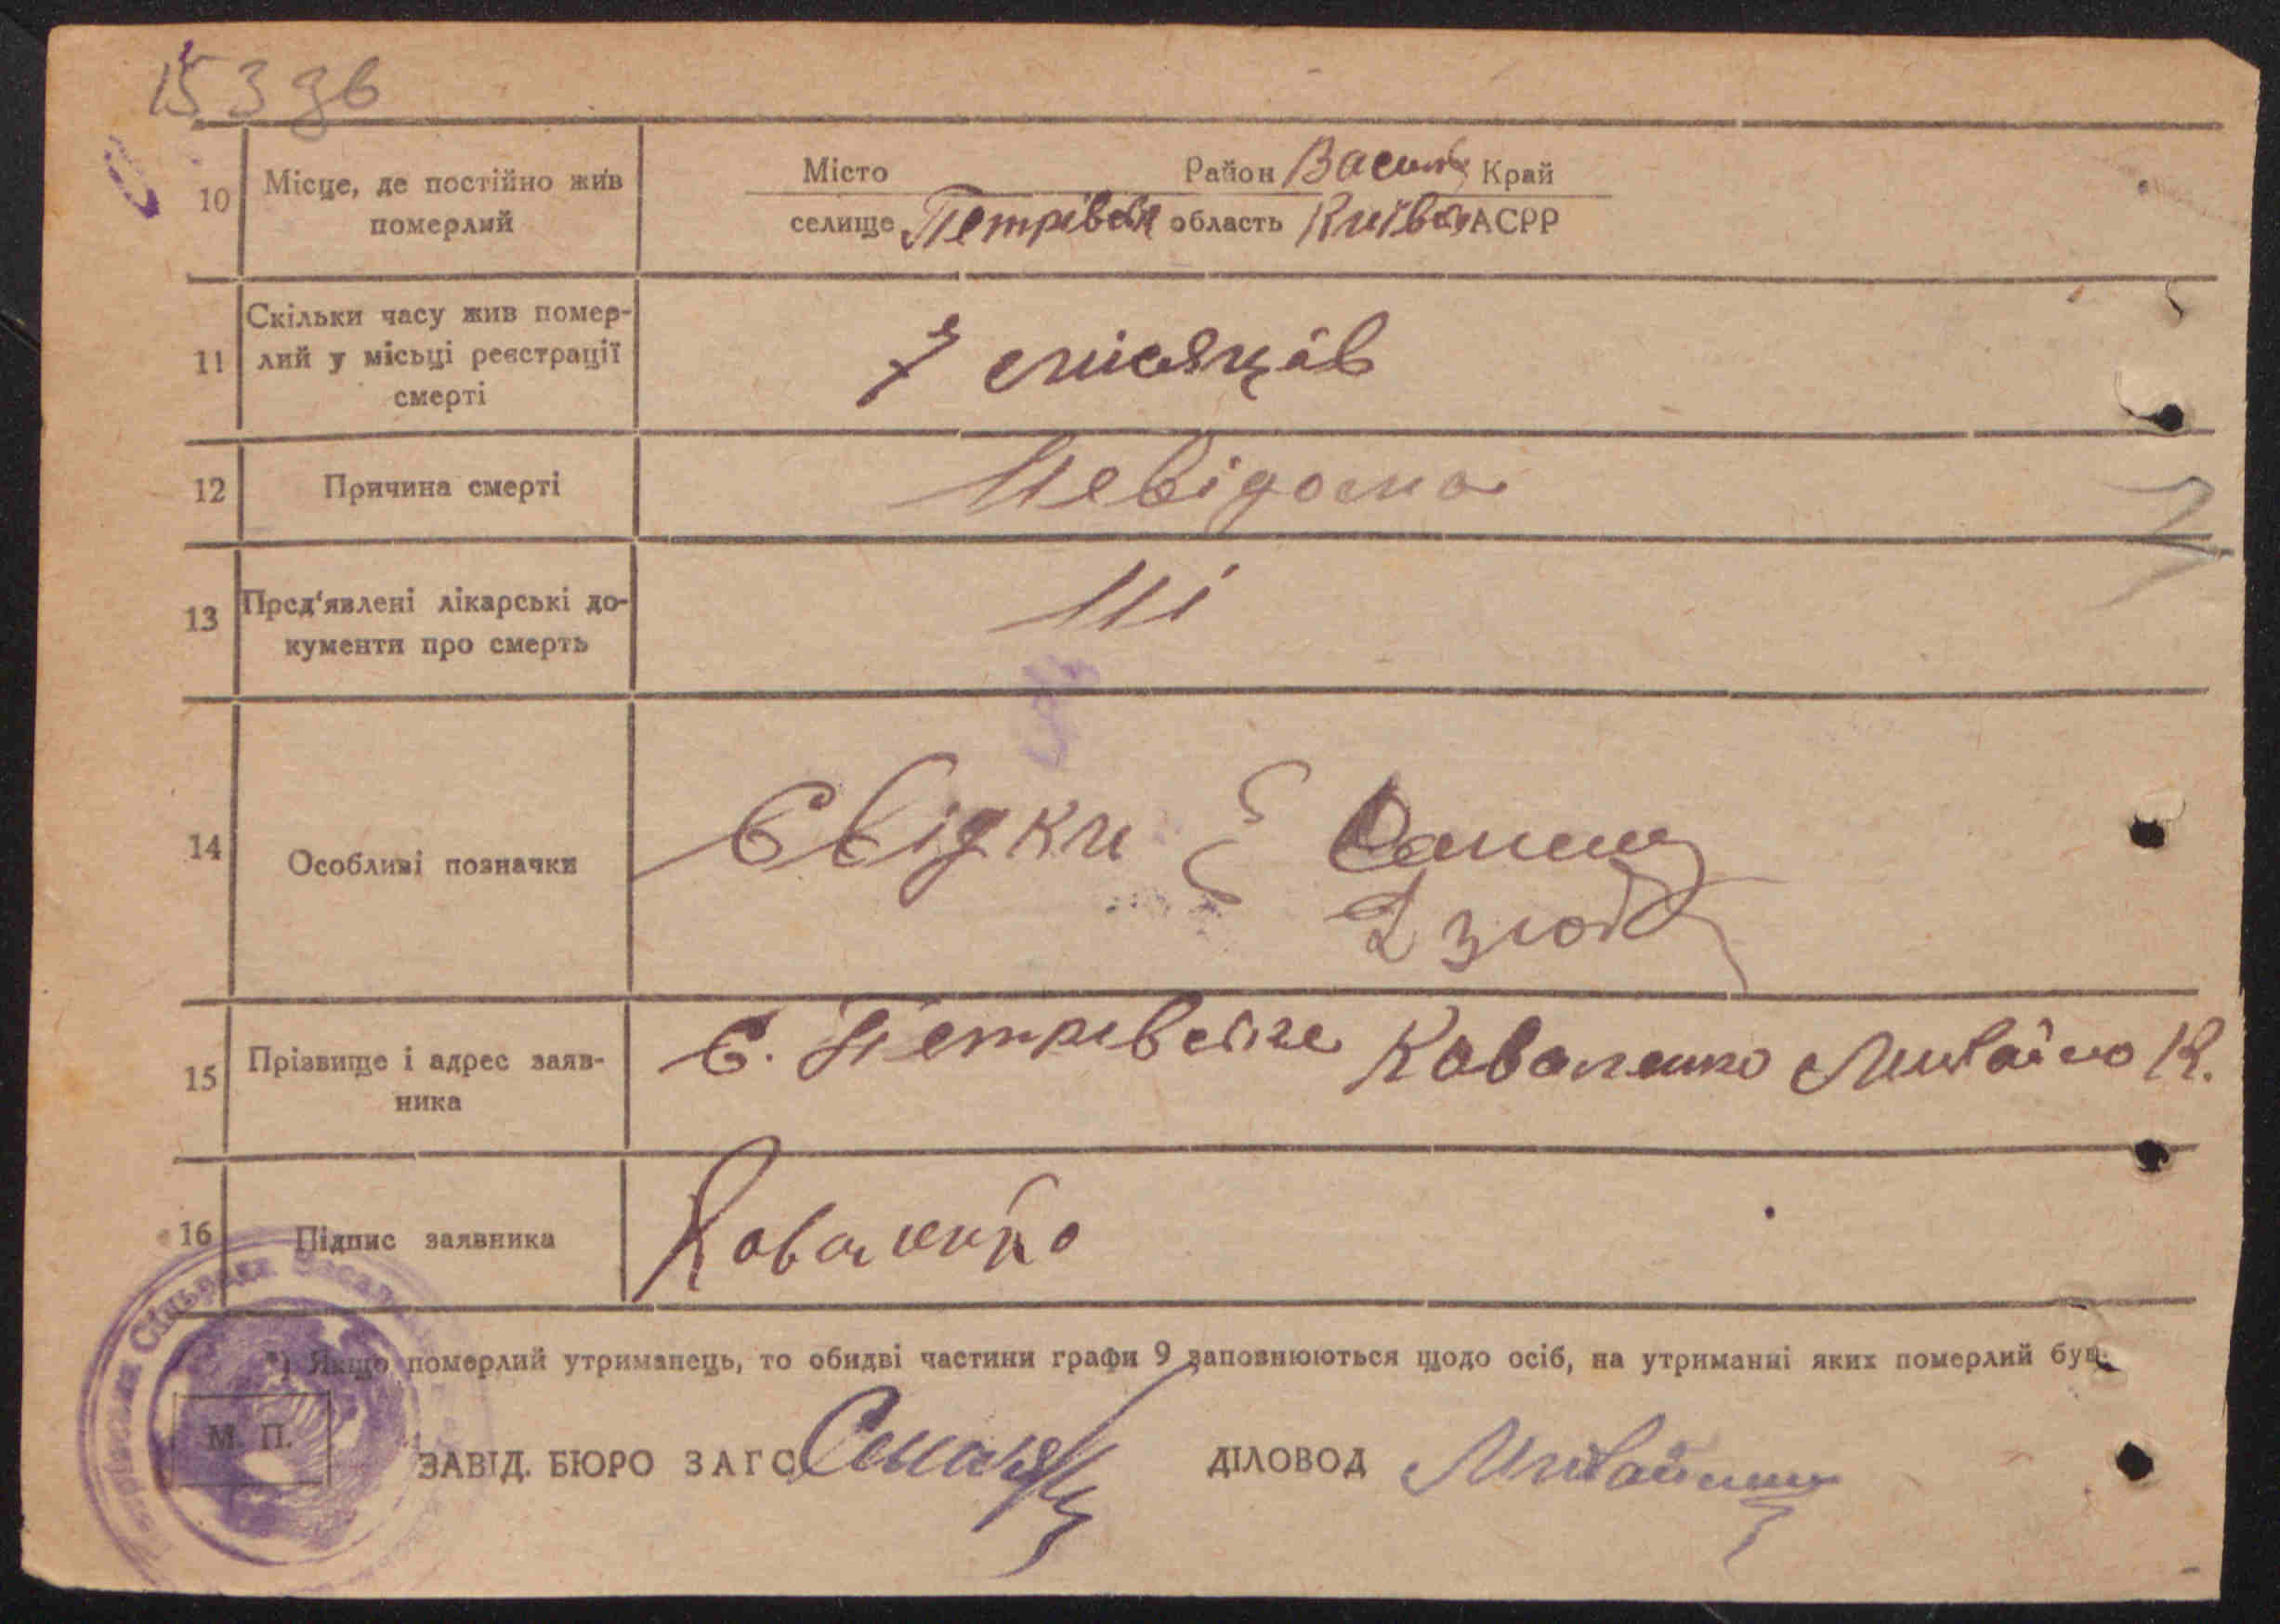 153 зв
10 Місце, де постійно жив померлий
Місто Район Васильк Край
селище Петрівське область Київськ АСРР
11 Скільки часу жив помер-
лий у місьці реєстрації
смерті
7 місяців
12 Причина смерті Невідома
13 Пред'явлені лікарські до-
кументи про смерть
Ні
14 Особливі позначки
Свідки
Дзюб
15 Прізвище і адрес заяв-
ника
С. Петрівське Коваленко Михайло К.
16 Підпис заявника Коваленко
*) Якщо померлий утриманець, то обидві частини графи 9 заповнюються щодо осіб, на утриманні яких померлий був.
М. П.
ЗАВІД. БЮРО ЗАГС ДІЛОВОД
Сільрада